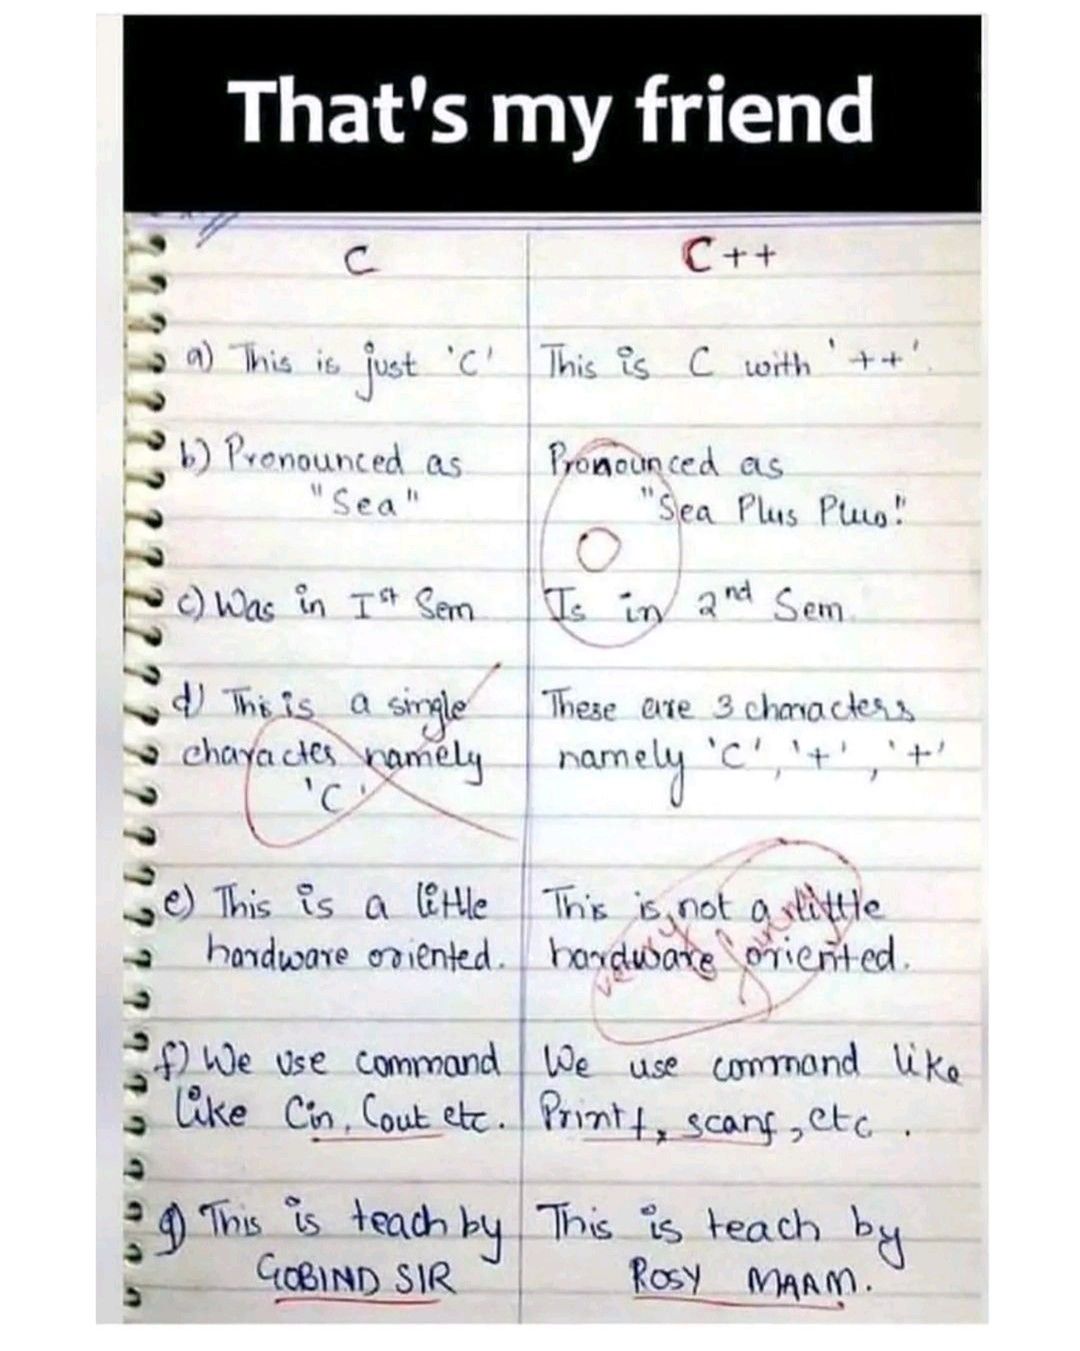 That's my friend
C
C++
a) This is just 'C'
This is C with '++'.
b) Pronounced as
"Sea"
Pronounced as
"Sea Plus Plus!"
O
c) Was in Ist Sem
Is in 2nd Sem.
d) This is a single
character namely
'C'
These are 3 characters
namely 'C', '+', '+'
e) This is a little
hardware oriented.
This is not a little
hardware oriented.
very funny
f) We use command
like Cin, Cout etc.
We use command like
Printf, scanf, etc.
g) This is teach by
GOBIND SIR
This is teach by
ROSY MAAM.